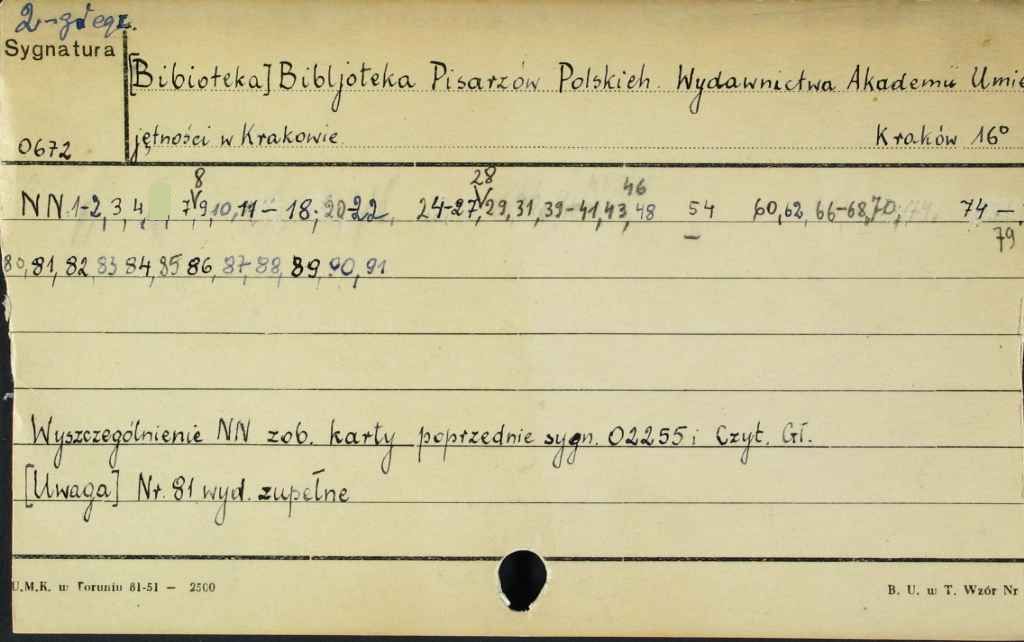 2-gi egz.
Sygnatura
[Bibioteka] Bibljoteka Pisarzów Polskich. Wydawnictwa Akademii Umie
jętności w Krakowie Kraków 16°
0672
8 28 46
NN 1-2, 3, 4, 7, 9, 10, 11 - 18, 20-22, 24-27, 29, 31, 39-41, 43, 48 54 60, 62, 66-68, 70, 74 -
79
80, 81, 82, 83 84, 85 86, 87-88, 89, 90, 91
Wyszczególnienie NN zob. karty poprzednie sygn. 02255 i Czyt. Gł.
[Uwaga] Nr. 81 wyd. zupełne
U.M.K. w Toruniu 81-51 — 2500
B. U. w T. Wzór Nr